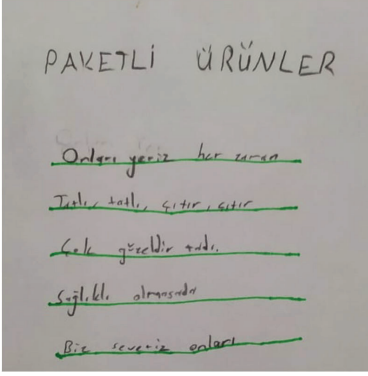 PAKETLİ ÜRÜNLER
Onları yeriz her zaman
Tatlı, tatlı, çıtır, çıtır
Çok güzeldir tadı.
Sağlıklı olmasada
Biz severiz onları